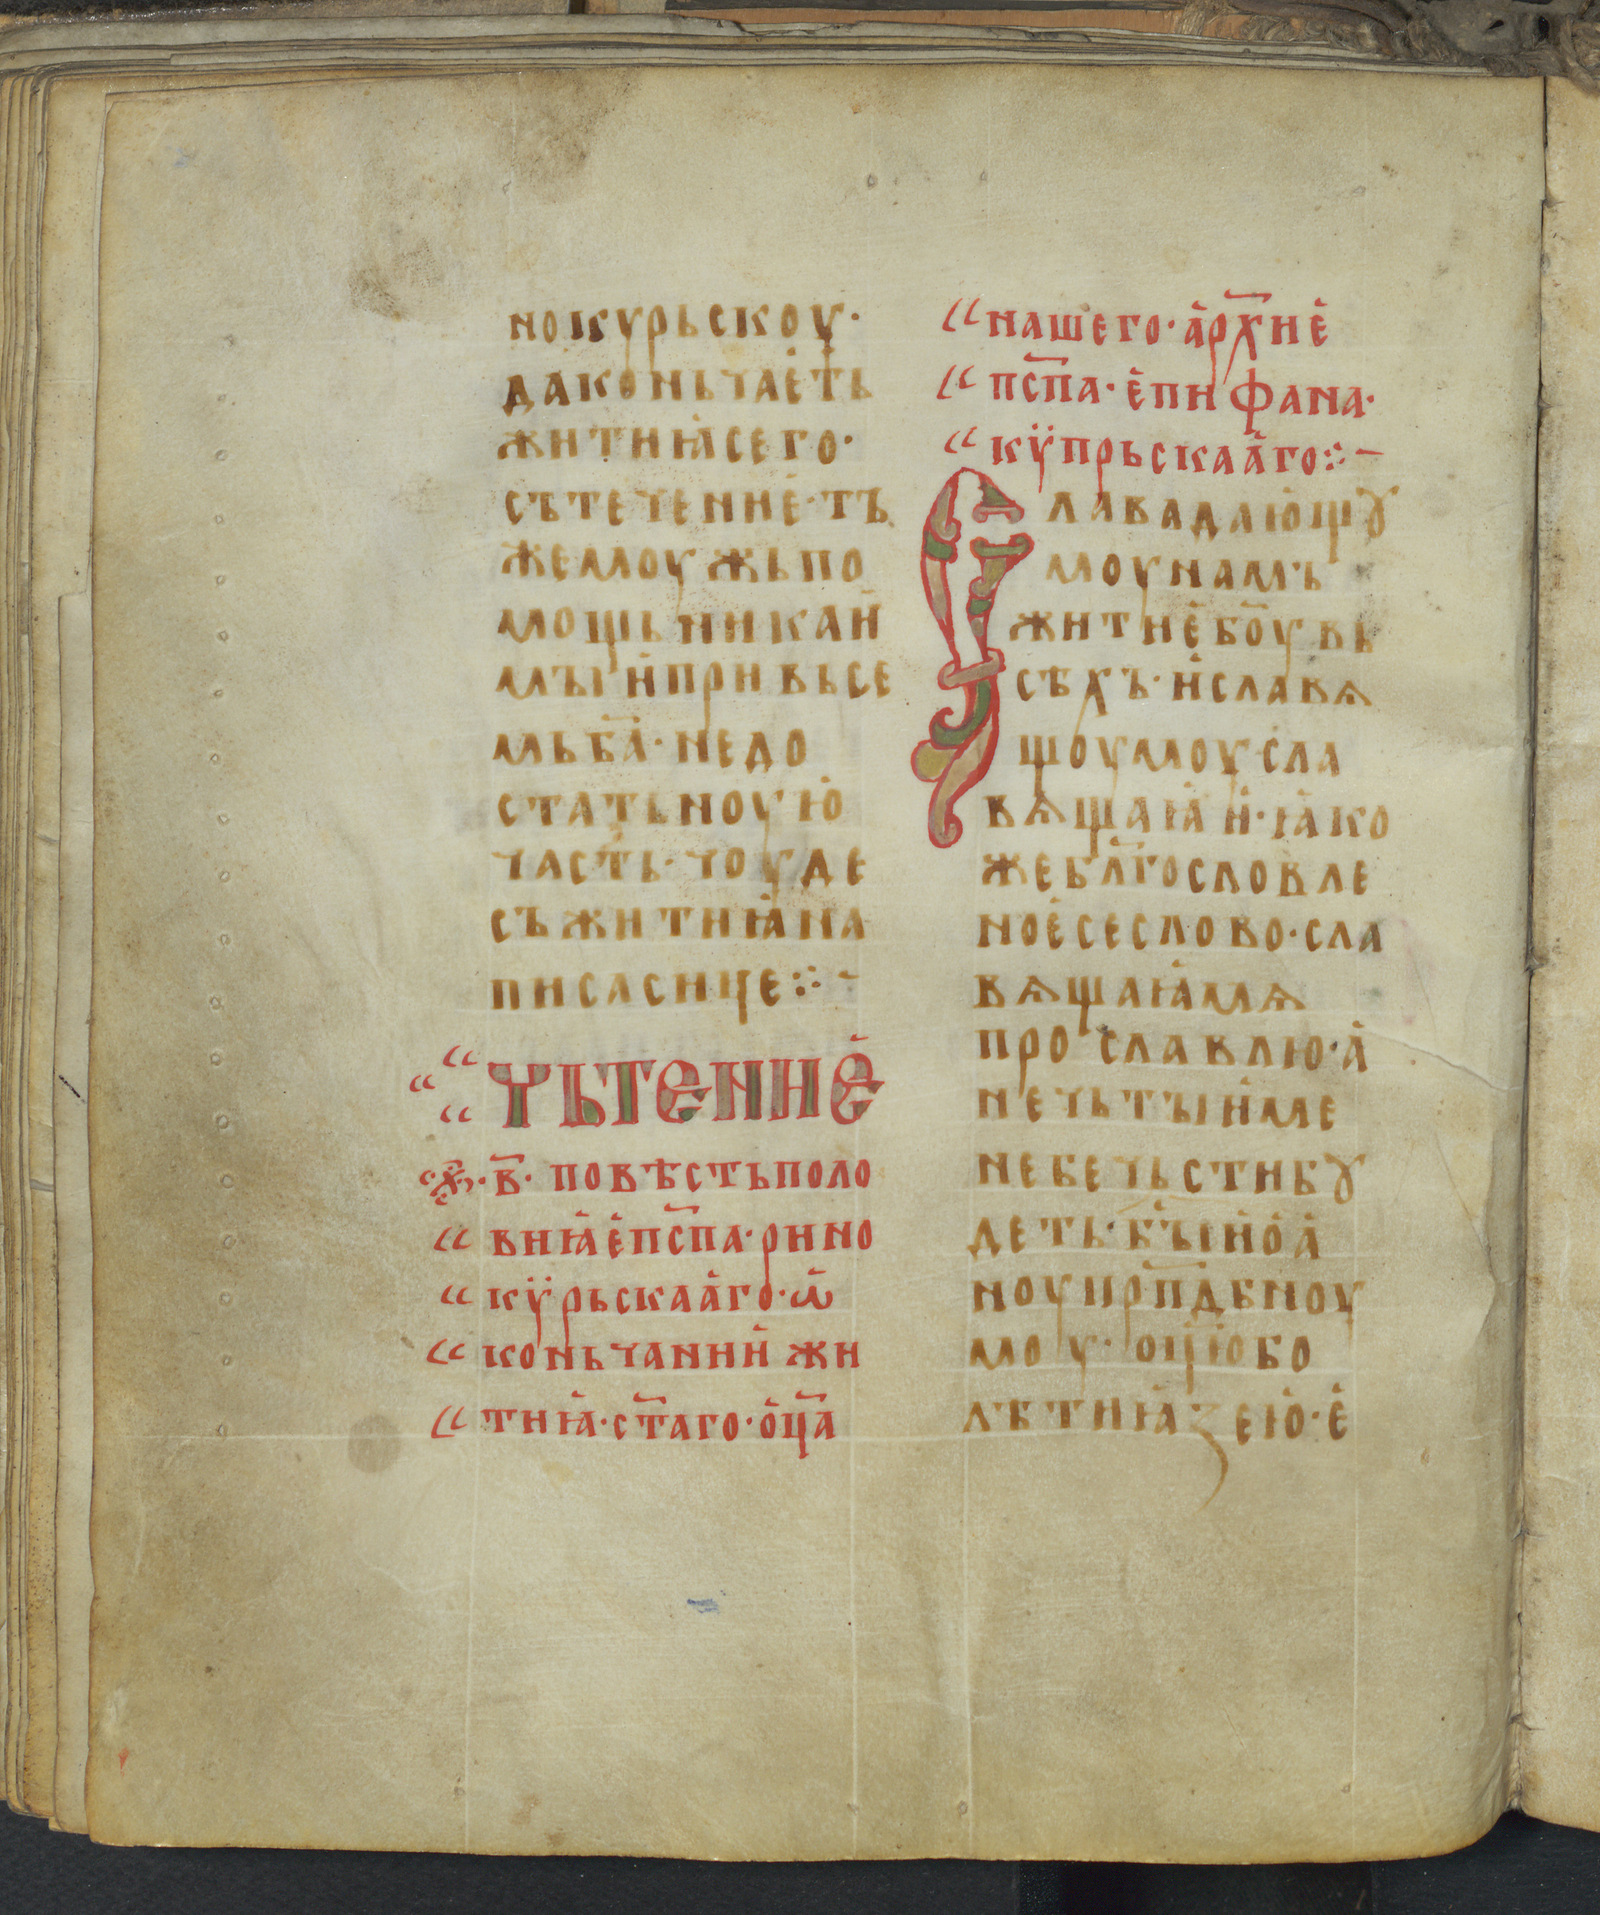 нокурьскоу·
даконьчаѥть
житиꙗсего·
сътечение·тъ
жемоужьпо
мощьникаи
мъıиприв̑ьсе
мьба҃·недо
статьноую
часть·чоуде
съжитиꙗна
писасице჻~
чьтение
·в҃·повѣстьполо
виꙗеп҃спа·рино
кѷрьскааго·ѡ
коньчаниижи
тиꙗ·ст҃аго·оц҃а
нашего·арх҃ие
пс҃па·епифана·
кѷпрьскааго჻~
лавадающꙋ
моунамъ
житиебо҃увь
сѣхъ·иславѧ
щоумоусла
вѧщаꙗи·ꙗко
жебл҃гословле
ноесеслово·сла
вѧщаꙗмѧ
прославлю·а
нечьтъıиме
небечьстибꙋ
деть·б҃ъıиоа
ноуıпрп҃дбноу
моу·оц҃юбо
лѣтиꙗзею·е